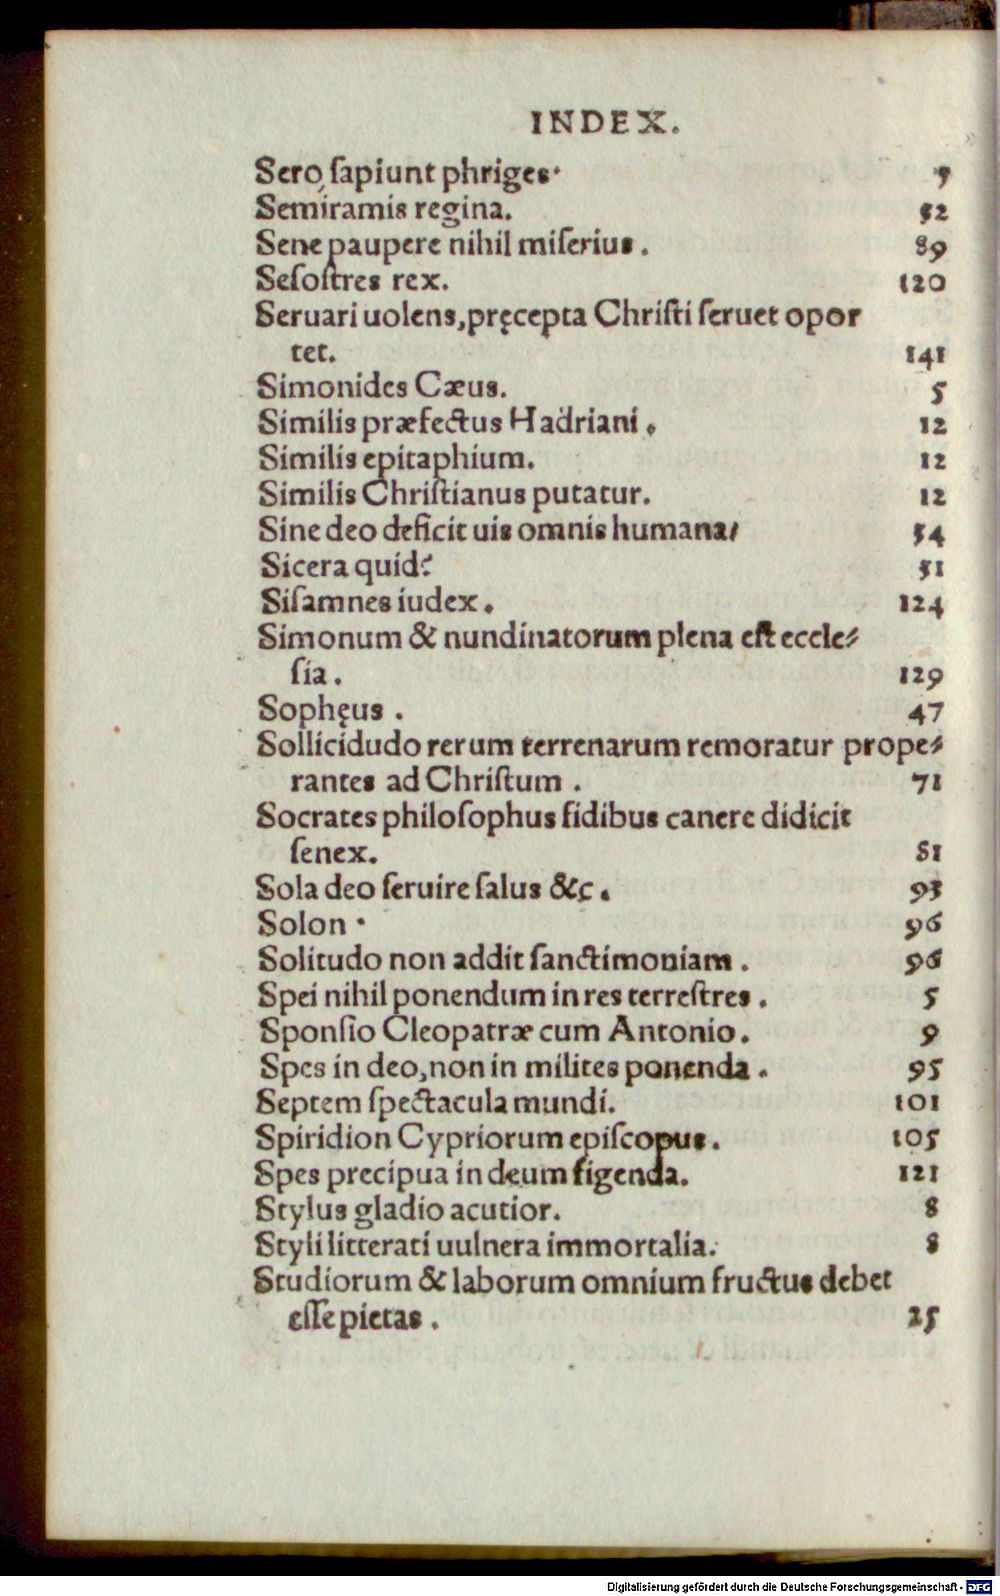 INDEX.
Sero ſapiunt phriges· 7
Semiramis regina. 52
Sene paupere nihil miſerius. 89
Seſoſtres rex. 120
Seruari uolens, pręcepta Chriſti ſeruet opor
tet. 141
Simonides Cæus. 5
Similis præfectus Hadriani. 12
Similis epitaphium. 12
Similis Chriſtianus putatur. 12
Sine deo deficit uis omnis humana/ 54
Sicera quid? 51
Siſamnes iudex. 124
Simonum & nundinatorum plena eſt eccle⸗
ſia. 129
Sophęus. 47
Sollicidudo rerum terrenarum remoratur prope⸗
rantes ad Chriſtum. 71
Socrates philoſophus fidibus canere didicit
ſenex. 81
Sola deo ſeruire ſalus &c. 93
Solon· 96
Solitudo non addit ſanctimoniam. 96
Spei nihil ponendum in res terreſtres. 5
Sponſio Cleopatræ cum Antonio. 9
Spes in deo, non in milites ponenda. 95
Septem ſpectacula mundi. 101
Spiridion Cypriorum epiſcopus. 105
Spes precipua in deum figenda. 121
Stylus gladio acutior. 8
Styli litterati uulnera immortalia. 8
Studiorum & laborum omnium fructus debet
eſſe pietas. 25
Digitalisierung gefördert durch die Deutsche Forschungsgemeinschaft - DFG